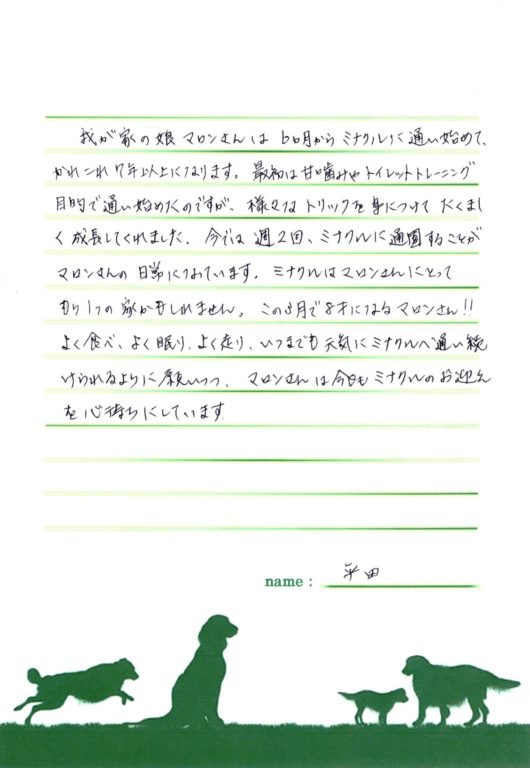 我が家の娘マロンさんは6ヵ月からミナクルに通い始めて、
かれこれ7年以上になります。最初は甘噛みやトイレットトレーニング
目的で通い始めたのですが、様々なトリックを身につけてたくまし
く成長してくれました。今では週2回、ミナクルに通園することが
マロンさんの日常になっています。ミナクルはマロンさんにとって
もう1つの家かもしれません。この3月で8才になるマロンさん!!
よく食べ、よく眠り、よく走り、いつまでも元気にミナクルへ通い続
けられるように願いつつ、マロンさんは今日もミナクルのお迎え
を心待ちにしています。
name : 平田